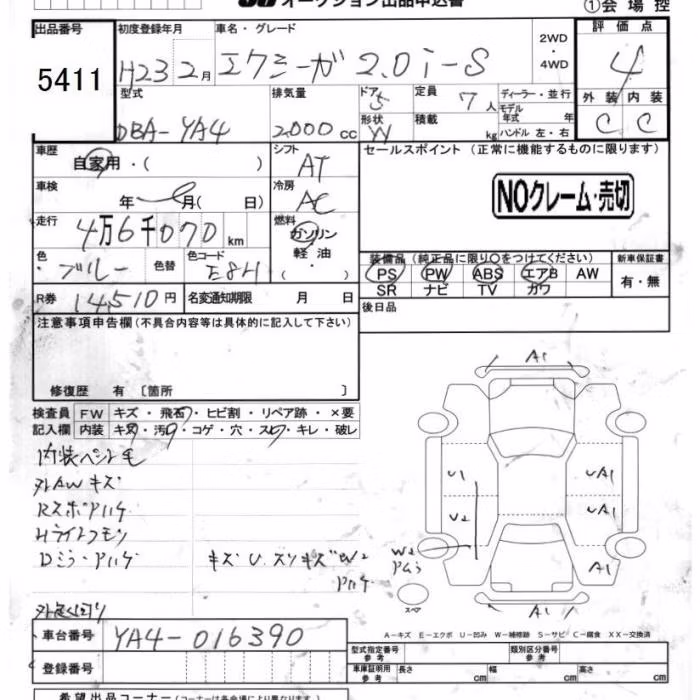 オークション出品申込書
①会場控
出品番号 初度登録年月 車名・グレード 2WD・4WD 評価点
5411 H23 2月 エクシーガ 2.0i-S 4
型式 排気量 ドア 5 定員 7人 ディーラー・並行 外装 内装
DBA-YA4 2,000cc 形状 W 積載 kg モデル年式 年式 ハンドル 左・右 C C
車歴 自家用・( ) シフト AT セールスポイント(正常に機能するものに限ります)
車検 年 月( 日) 冷房 AC NOクレーム・売切
走行 4万6千070km 燃料 ガソリン 軽油 ( ・ )
色 ブルー 色替 色コード E8H 装備品(純正品に限り○をつけてください) 新車保証書
PS PW ABS エアB AW 有・無
SR ナビ TV カワ
R券 14510円 名変通知期限 月 日 後日品
注意事項申告欄(不具合内容等は具体的に記入して下さい)
修復歴 有 〔箇所 〕
検査員 FW キズ・飛石・ヒビ割・リペア跡・×要
記入欄 内装 キズ・汚レ・コゲ・穴・スレ・キレ・破レ
外AWキズ
A1
U1 A1
U2 A1
W2
A1
A1
スペア
A-キズ E-エクボ U-凹み W-補修跡 S-サビ C-腐食 XX-交換済
車台番号 YA4-016390 型式指定番号 参考 類別区分番号 参考
登録番号 車庫証明用 参考 長さ cm 幅 cm 高さ cm
希望出品コーナー(コーナーは各会場により異なります)